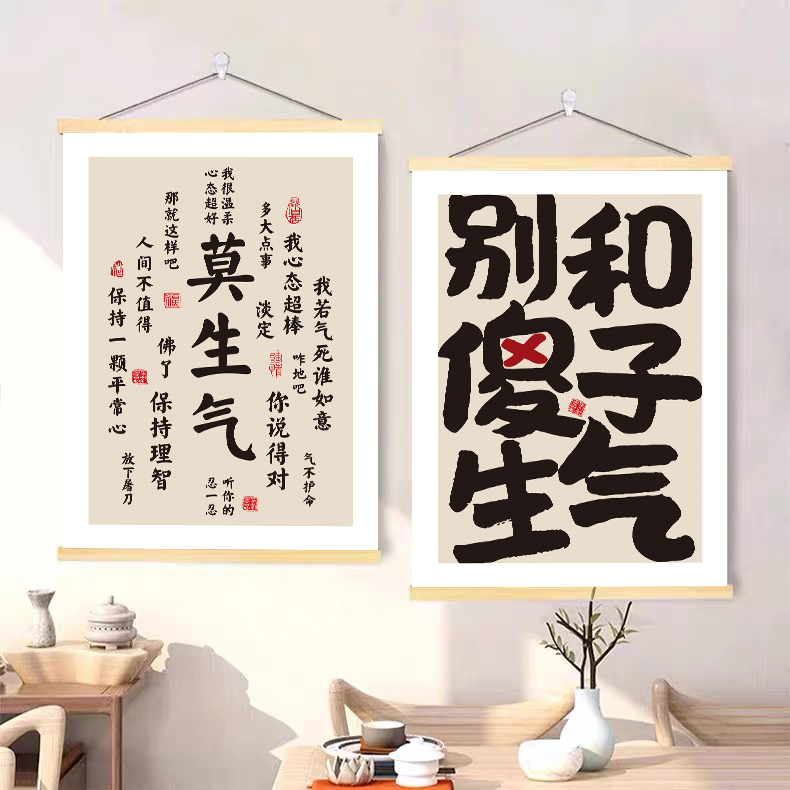 我若气死谁如意
气不护命
我心态超棒
咋地吧
你说得对
多大点事
淡定
我很温柔
心态超好
莫生气
听你的
忍一忍
那就这样吧
佛了
保持理智
人间不值得
放下屠刀
保持一颗平常心
别和
傻子
生气